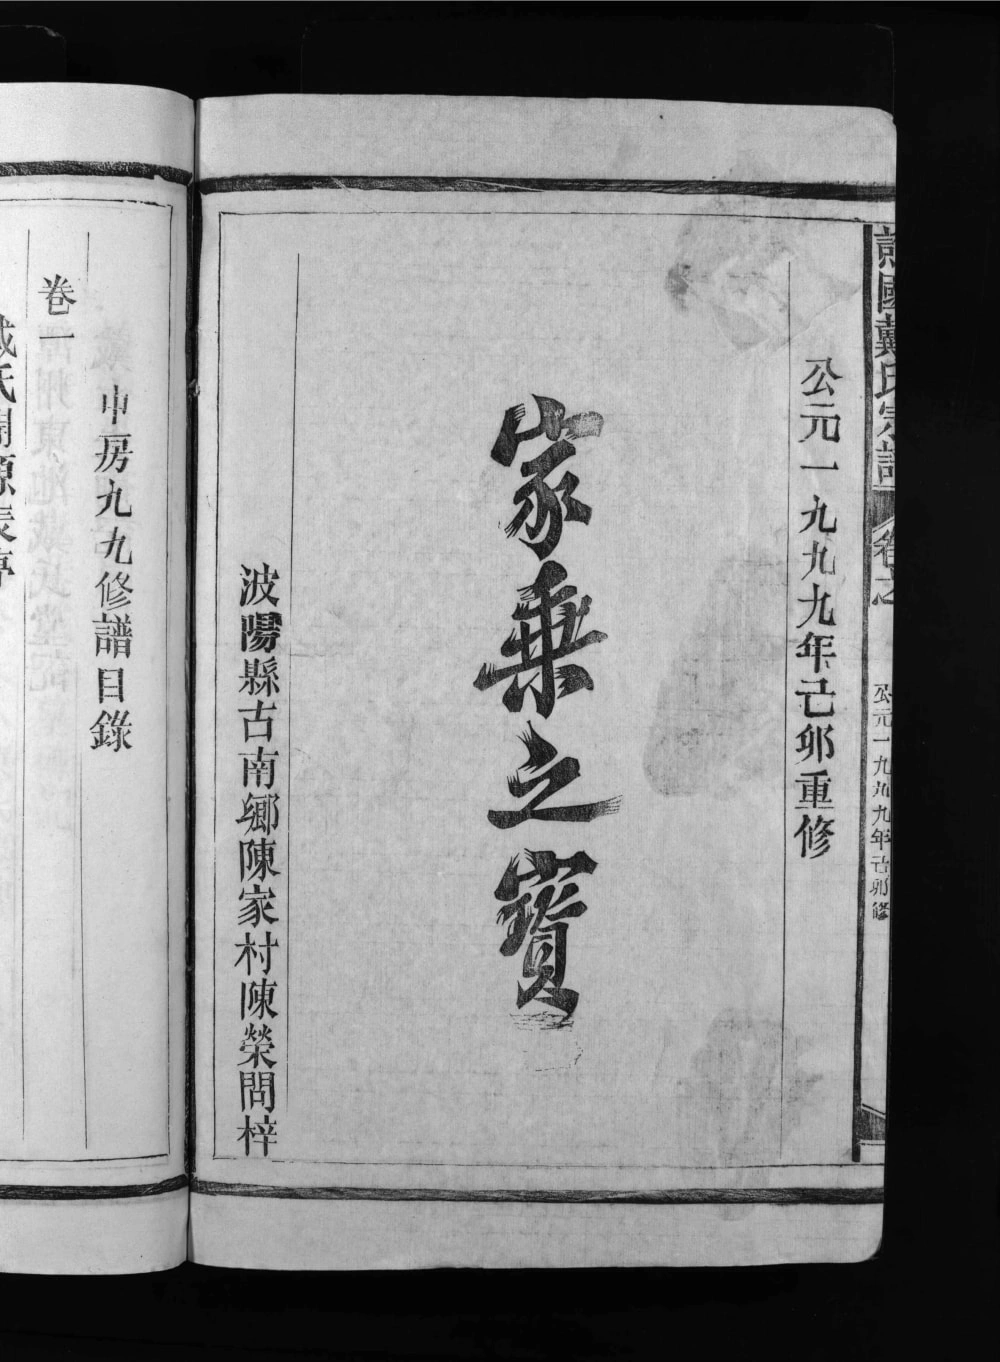 國戴氏宗譜
卷之
公元一九九九年己卯修
公元一九九九年己卯重修
家乘之寶
波陽縣古南鄉陳家村陳榮問梓
中房九九修譜目錄
卷一
戴氏開源表序